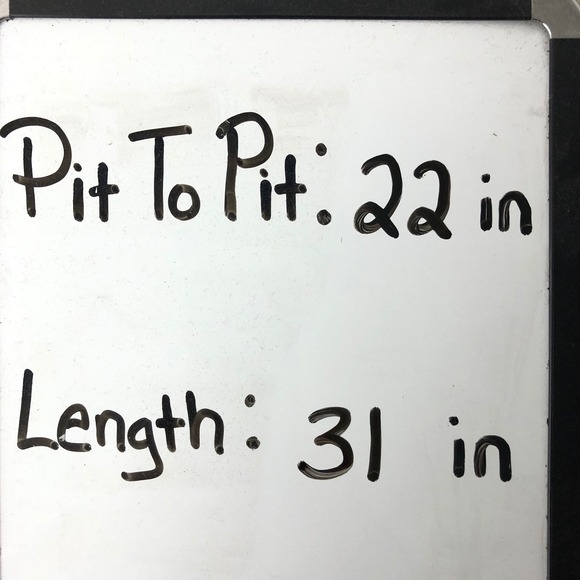 Pit To Pit: 22 in
Length: 31 in